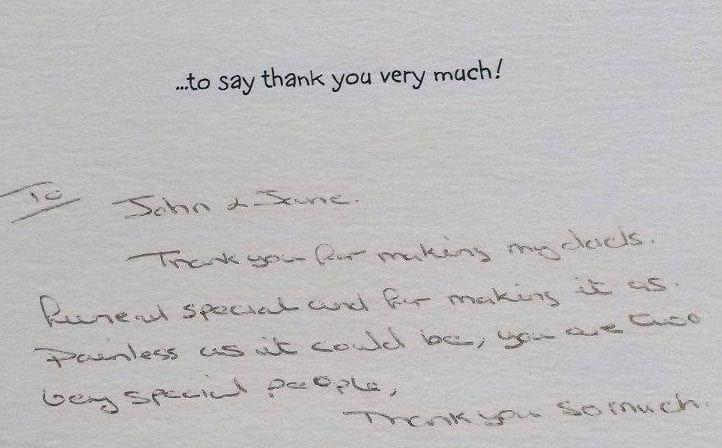 ...to say thank you very much!
To John & June.
Thank you for making my dads.
funeral special and for making it as.
Painless as it could be, you are two
very special people,
Thank you so much.